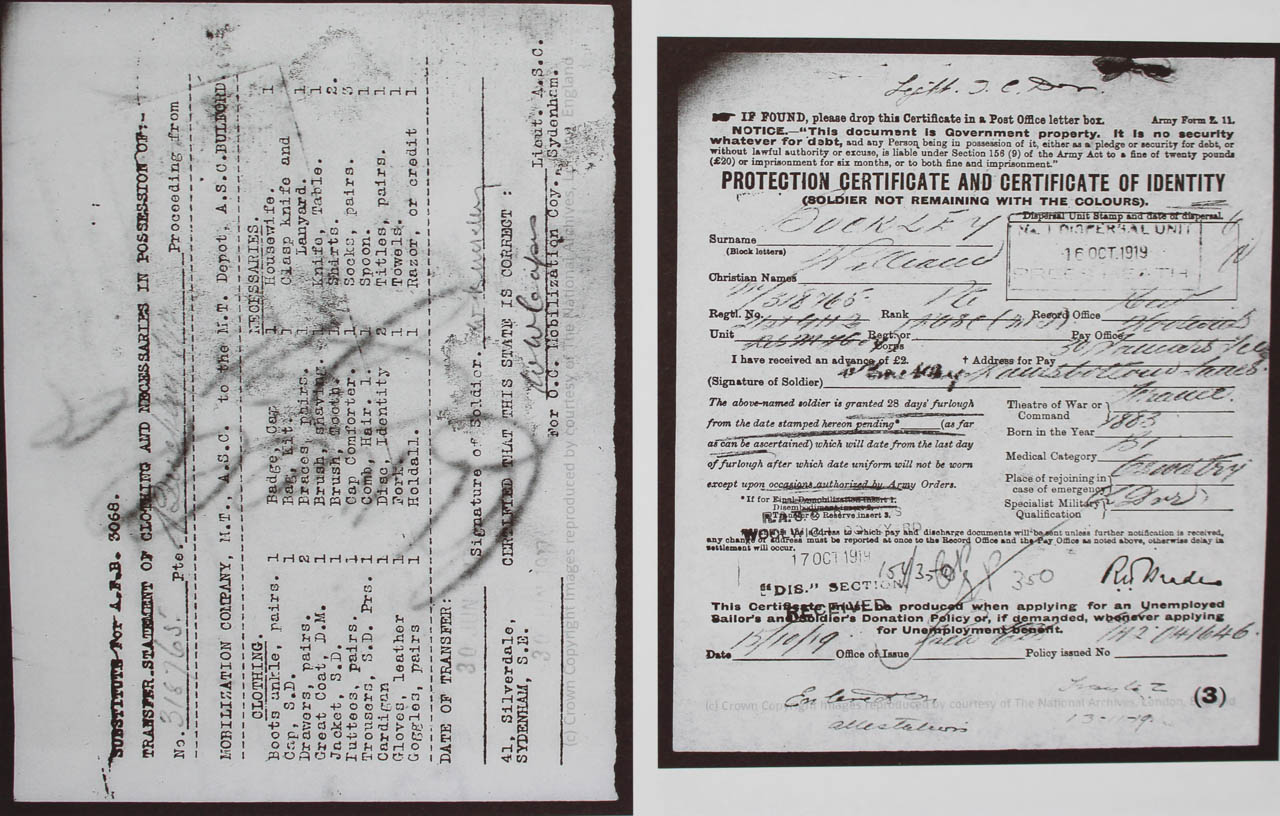 SUBSTITUTE For A.F.B. 3068.
TRANSFER STATEMENT OF CLOTHING AND NECESSARIES IN POSSESSION OF:-
No. 318765. Pte. Proceeding from
MOBILIZATION COMPANY, M.T., A.S.C. to the M.T. Depot, A.S.C. BULFORD.
CLOTHING. NECESSARIES.
Boots ankle, pairs. 1 Badge, Cap 1 Housewife. 1
Cap, S.D. 1 Bag, Kit. 1 Clasp knife and
Drawers, pairs. 2 Braces, pairs. 1 Lanyard. 1
Great Coat, D.M. 1 Brush, shaving. 1 Knife, Table. 1
Jacket, S.D. 1 Brush, Tooth. 1 Shirts. 2.
Puttees, pairs. 1 Cap Comforter. 1 Socks, pairs. 3
Trousers, S.D. Prs. 1 Comb, Hair. 1. 1 Spoon. 1
Cardigan 1 Disc, Identity 2 Titles, pairs. 1
Gloves, leather 1 Fork. 1 Towels. 1
Goggles, pairs 1 Holdall. 1 Razor, or credit 1
DATE OF TRANSFER: 30 JUN Signature of Soldier.
41, Silverdale, CERTIFIED THAT THIS STATE IS CORRECT :
SYDENHAM, S.E. 30 JUN 1917 Lieut. A.S.C.
For O.C. Mobilization Coy., Sydenham.
(c) Crown Copyright Images reproduced by courtesy of The National Archives, London, England
IF FOUND, please drop this Certificate in a Post Office letter box. Army Form Z. 11.
NOTICE.—"This document is Government property. It is no security
whatever for debt, and any Person being in possession of it, either as a pledge or security for debt, or
without lawful authority or excuse, is liable under Section 156 (9) of the Army Act to a fine of twenty pounds
(£20) or imprisonment for six months, or to both fine and imprisonment."
PROTECTION CERTIFICATE AND CERTIFICATE OF IDENTITY
(SOLDIER NOT REMAINING WITH THE COLOURS).
Dispersal Unit Stamp and date of dispersal.
No. 1 DISPERSAL UNIT
Surname BUCKLEY
(Block letters)
16 OCT. 1919
Christian Names William
Regtl. No. M/318765 Rank Pte Record Office
Unit Regt. or Corps Pay Office Woolwich
I have received an advance of £2. † Address for Pay
(Signature of Soldier)
The above-named soldier is granted 28 days' furlough
from the date stamped hereon pending* (as far
as can be ascertained) which will date from the last day
of furlough after which date uniform will not be worn
except upon occasions authorized by Army Orders.
Theatre of War or Command France.
Born in the Year 1883
Medical Category B1
Place of rejoining in case of emergency Coventry
Specialist Military Qualification
* If for Final Demobilization insert 1.
Disembodiment insert 2.
Transfer to Reserve insert 3.
R.A.S.
WOOLWICH
any change of address must be reported at once to the Record Office and the Pay Office as noted above, otherwise delay in
settlement will occur.
17 OCT 1919
350
"DIS." SECTION
RECEIVED
This Certificate must be produced when applying for an Unemployed
Sailor's and Soldier's Donation Policy or, if demanded, whenever applying
for Unemployment benefit.
Date 15/10/19 Office of Issue Policy issued No 041646.
attestation
13-11-19
(c) Crown Copyright Images reproduced by courtesy of The National Archives, London, England
(3)